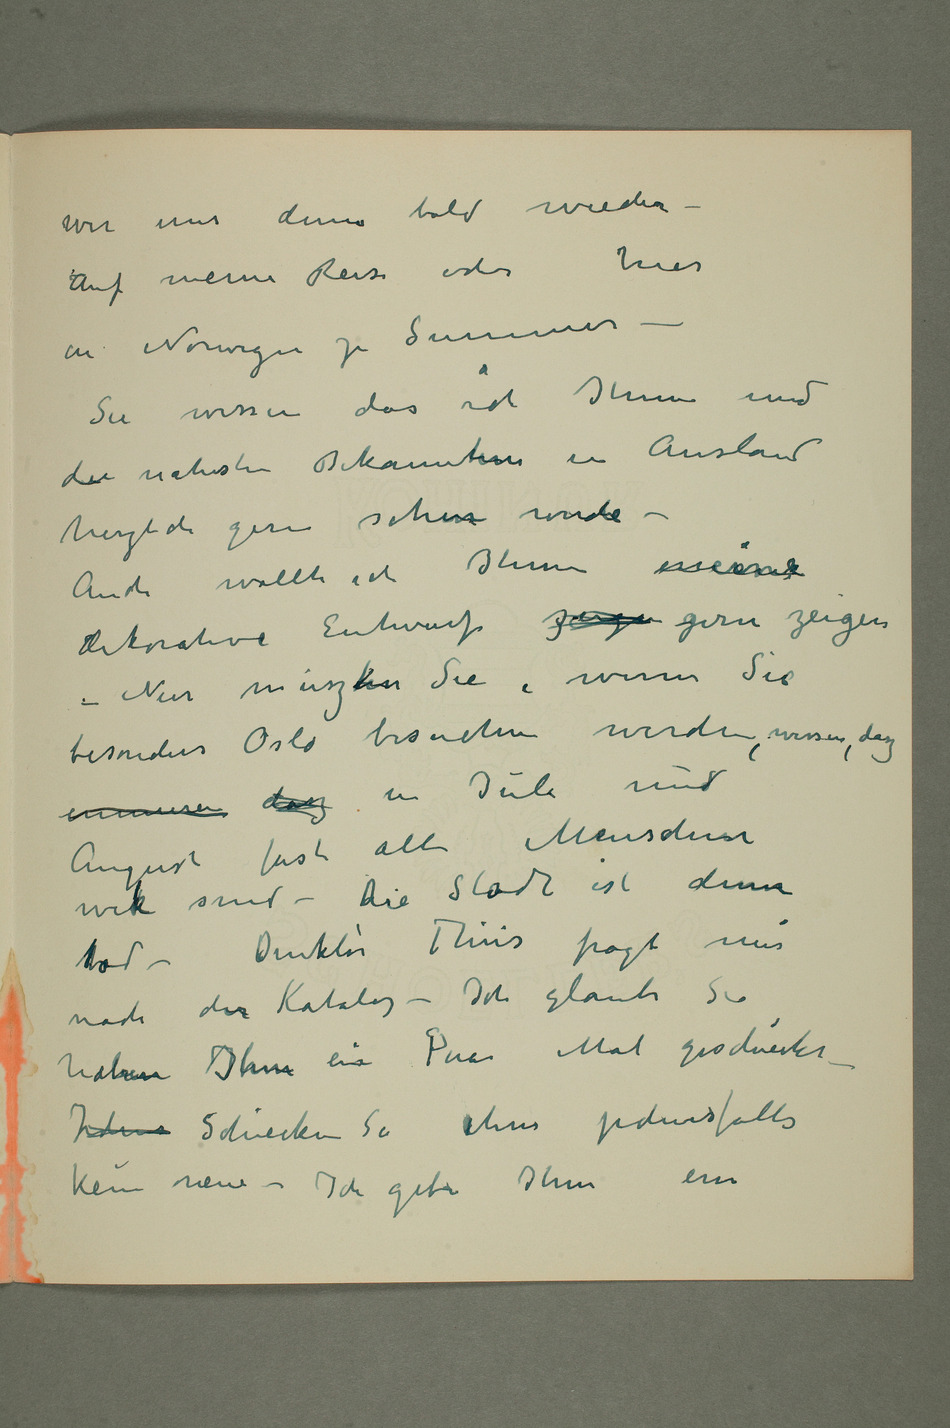 wir uns denn bald wieder –
Auf meine Reise oder hier
in Norwegen zu Summer –
Sie wissen das ich Ihnen und
die nahesten Bekannten in Ausland
herzlich gern sehen würde –
Auch wollte ich Ihnen meine
dekorative Entwurfe zeigen gern zeigen
– Nur müszten Sie, wenn Sie
besonders Oslo besuchen werden, wissen, dasz
dasz in Juli und
August fast alle Menschen
wek sind – Die Stadt ist denn
tod – Direktör Thiis fragt mir
nach der Katalog – Ich glaube Sie
haben Ihm ein Paar Mal geschickt –
Schicken Sie ihm jedenfalls
kein neue – Ich gebe Ihm ein